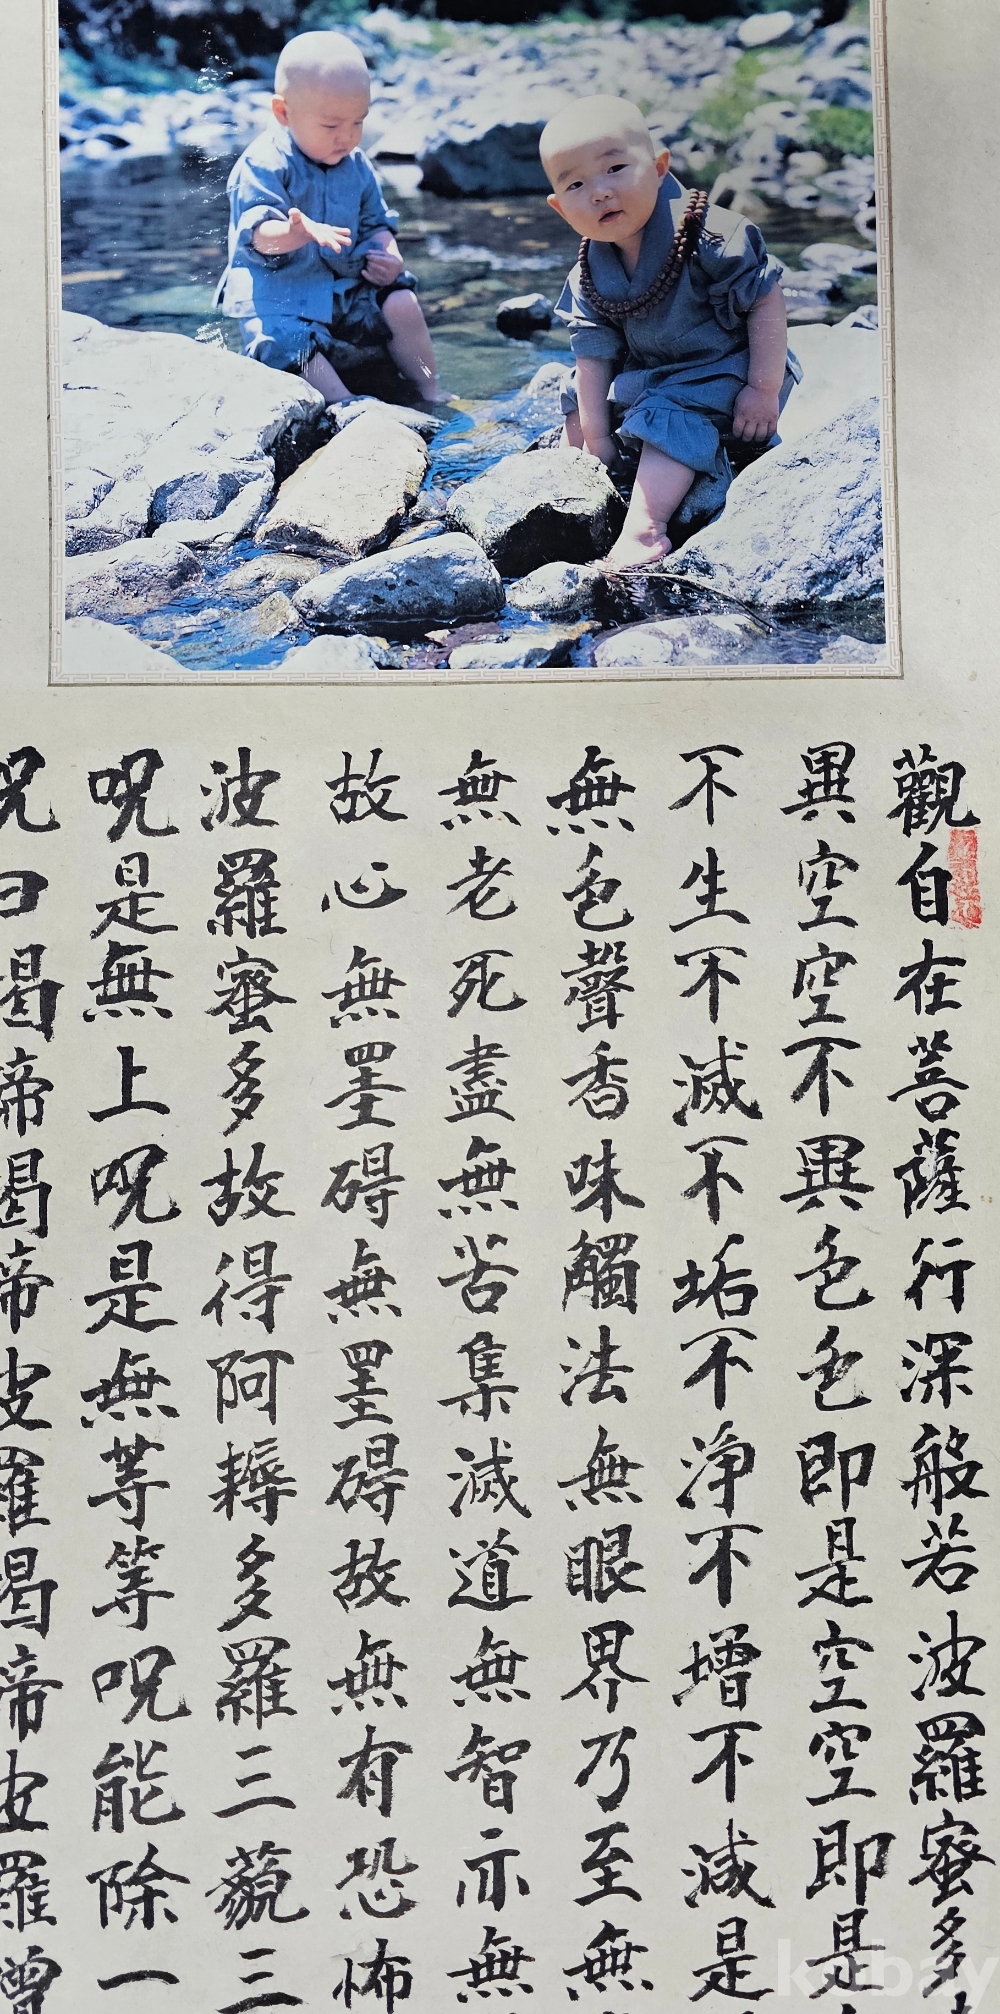 觀自在菩薩行深般若波羅蜜多
異空空不異色色即是空空即是
不生不滅不垢不淨不增不減是
無色聲香味觸法無眼界乃至無
無老死盡無苦集滅道無智亦無
故心無罣碍無罣碍故無有恐怖
波羅蜜多故得阿耨多羅三藐三
呪是無上呪是無等等呪能除一
呪曰揭帝揭帝波羅揭帝波羅僧
kobay